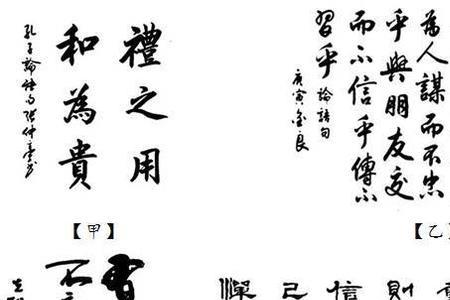 禮之用
和為貴
孔子論語句張仲
【甲】
為人謀而不忠
乎與朋友交
而不信乎傳不
習乎論語句
庚寅金良
【乙】
不
則
信
已
深